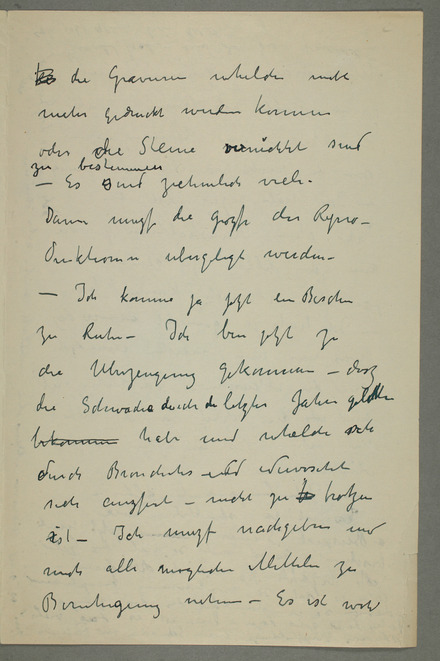 die Gravuren welche nicht
mehr gedruckt werden können
oder die Steine vernichtet sind
zu bestimmen
— Es sind ziemlich viele.
Dann muß die größe der Repro-
duktionen überlegt werden—
— Ich komme ja jetzt ein Bischen
zu Ruhe — Ich bin jetzt zu
die Überzeugung gekommen — daß
die Schwäche durch die letzten Jahre gelitten
bekommen habe und welche sich
durch Bronchitis und
sich — nicht zu trotzen
ist — Ich muß nachgeben und
mich alle möglichen Mitteln zu
Beruhigung nehmen — Es ist wohl